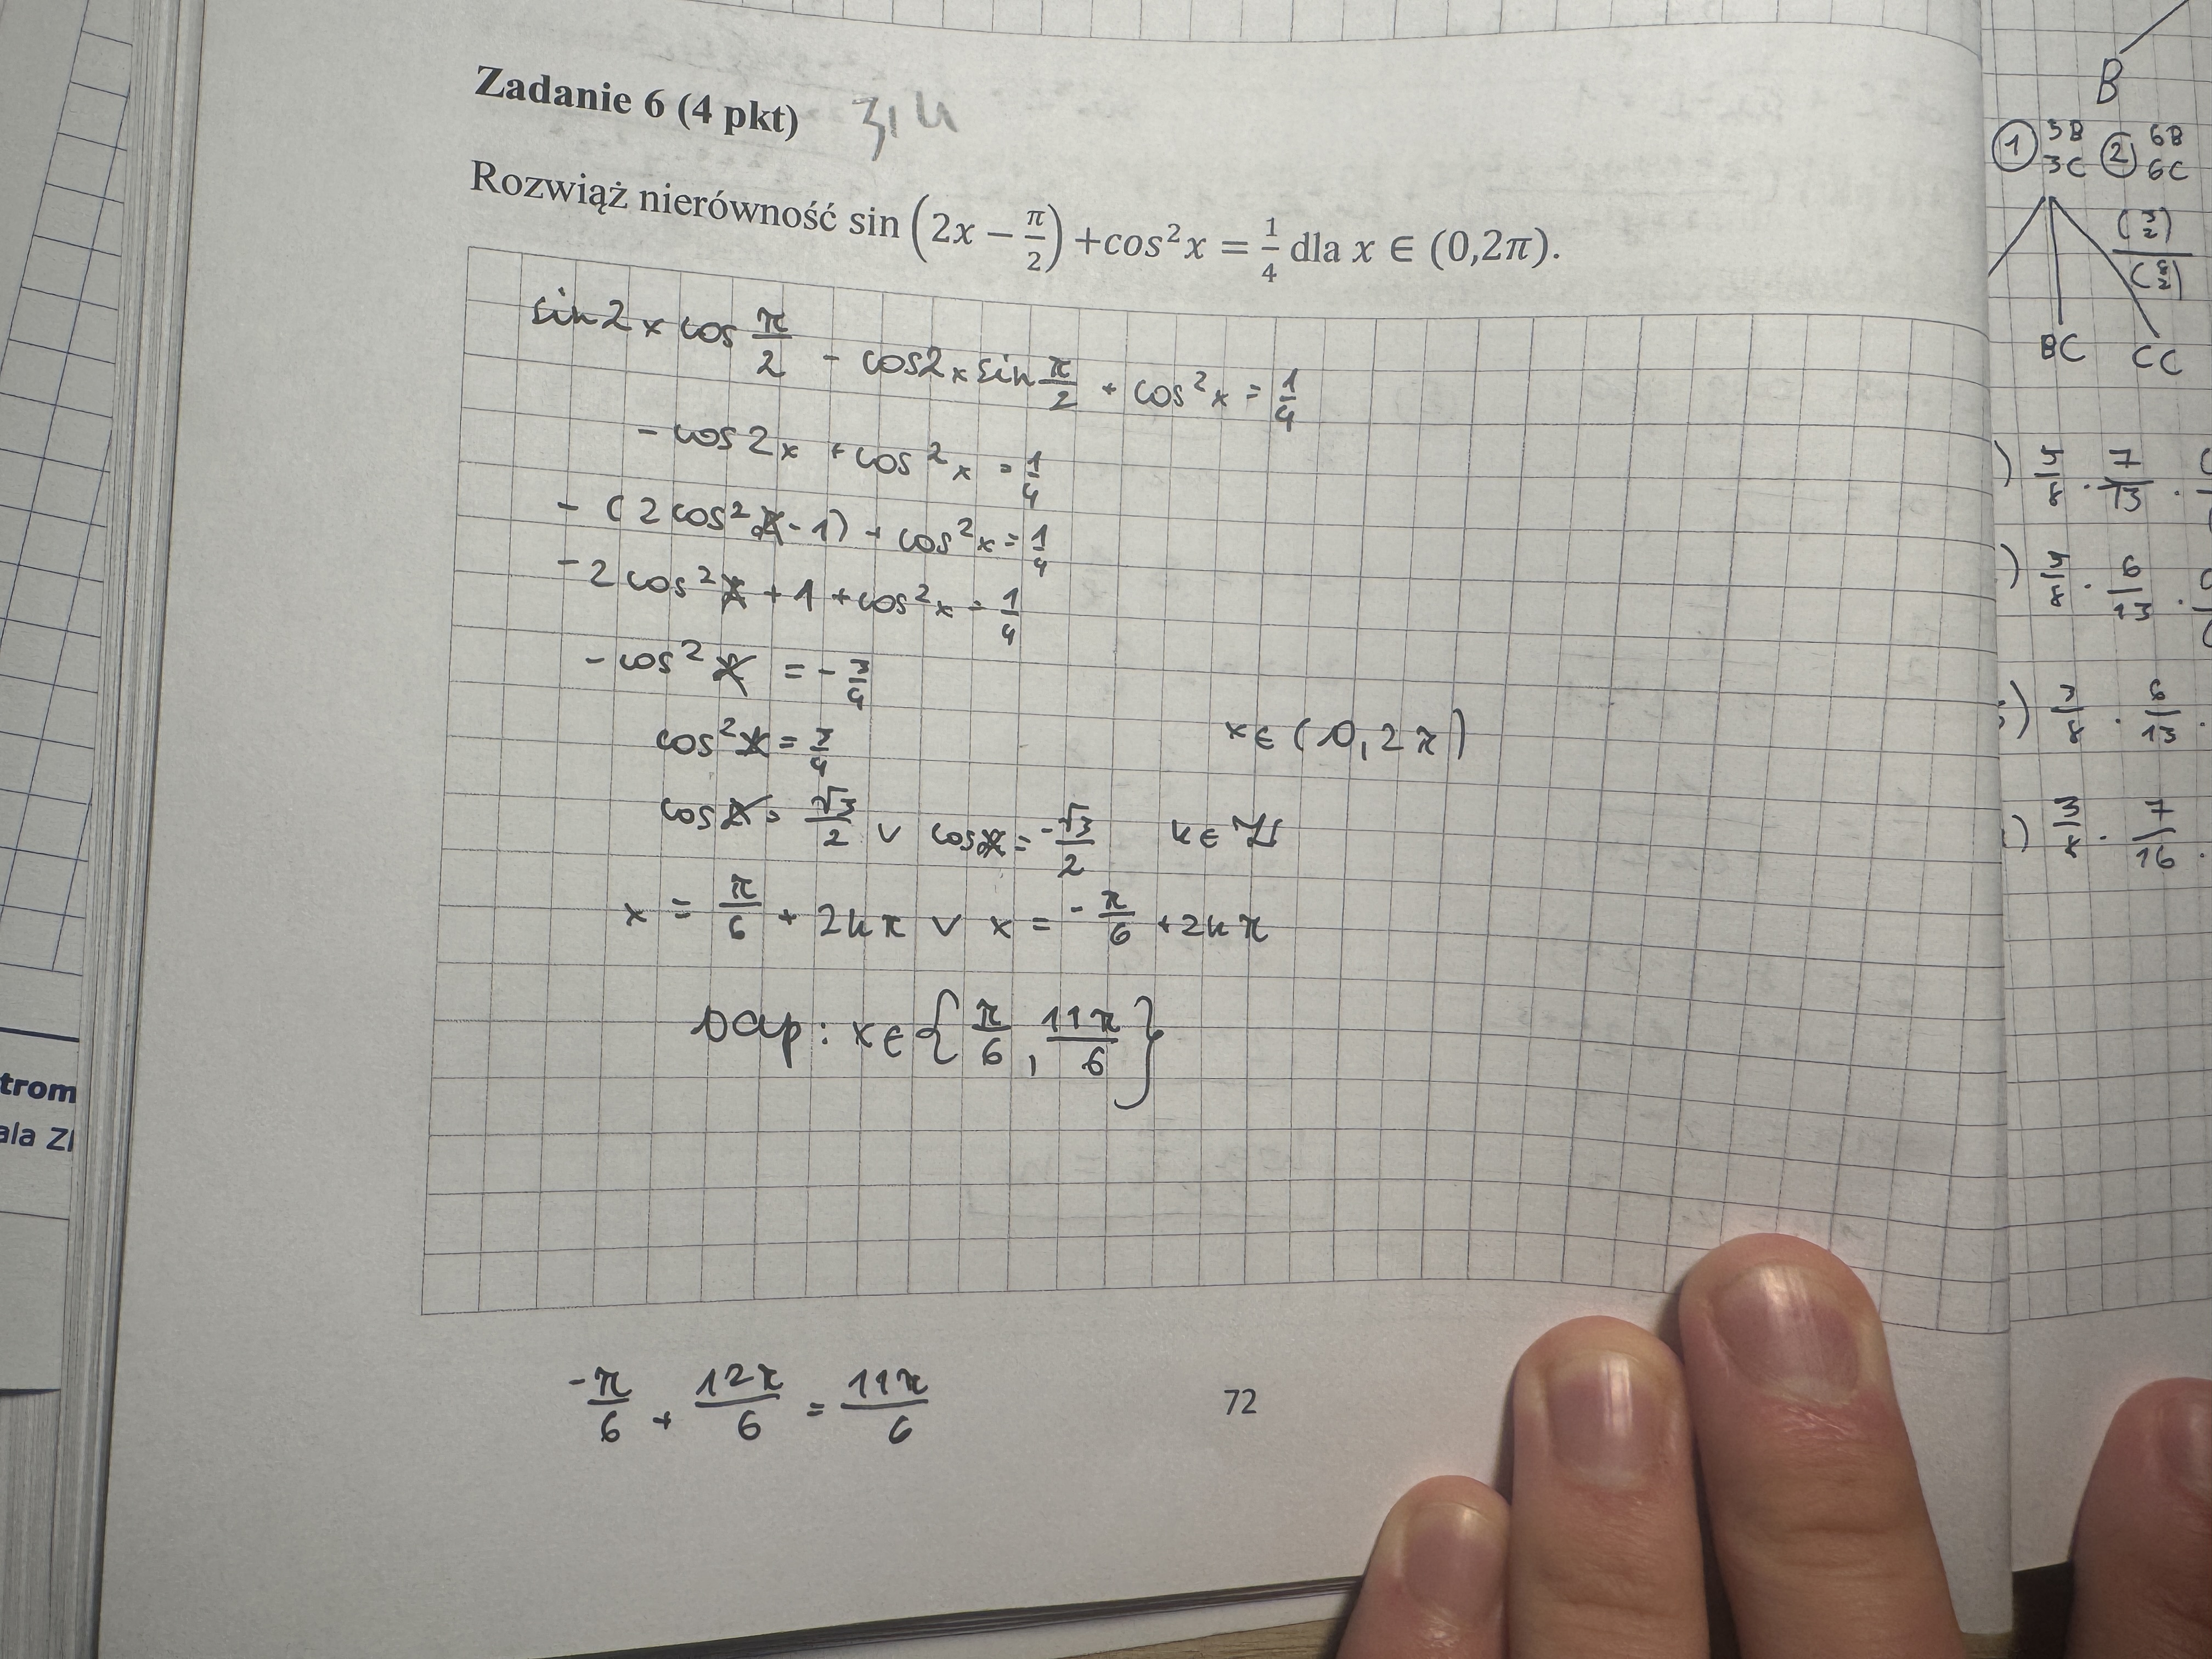 Zadanie 6 (4 pkt) 3,4
Rozwiąż nierówność sin (2x − π/2) +cos²x = 1/4 dla x ∈ (0,2π).
sin2x cos π/2 - cos2x sin π/2 + cos²x = 1/4
- cos2x + cos²x = 1/4
- (2cos²x - 1) + cos²x = 1/4
-2cos²x + 1 + cos²x = 1/4
- cos²x = - 3/4
cos²x = 3/4
x ∈ (0, 2π)
cosx = √3/2 ∨ cosx = -√3/2 k ∈ ℤ
x = π/6 + 2kπ ∨ x = -π/6 + 2kπ
Odp: x ∈ { π/6 , 11π/6 }
-π/6 + 12π/6 = 11π/6
72
trom
ala
B
1 3B 3C 2 6B 6C
BC CC
4/8 · 7/13 ·
6/13 ·
6/13 ·
3/8 · 7/16 ·